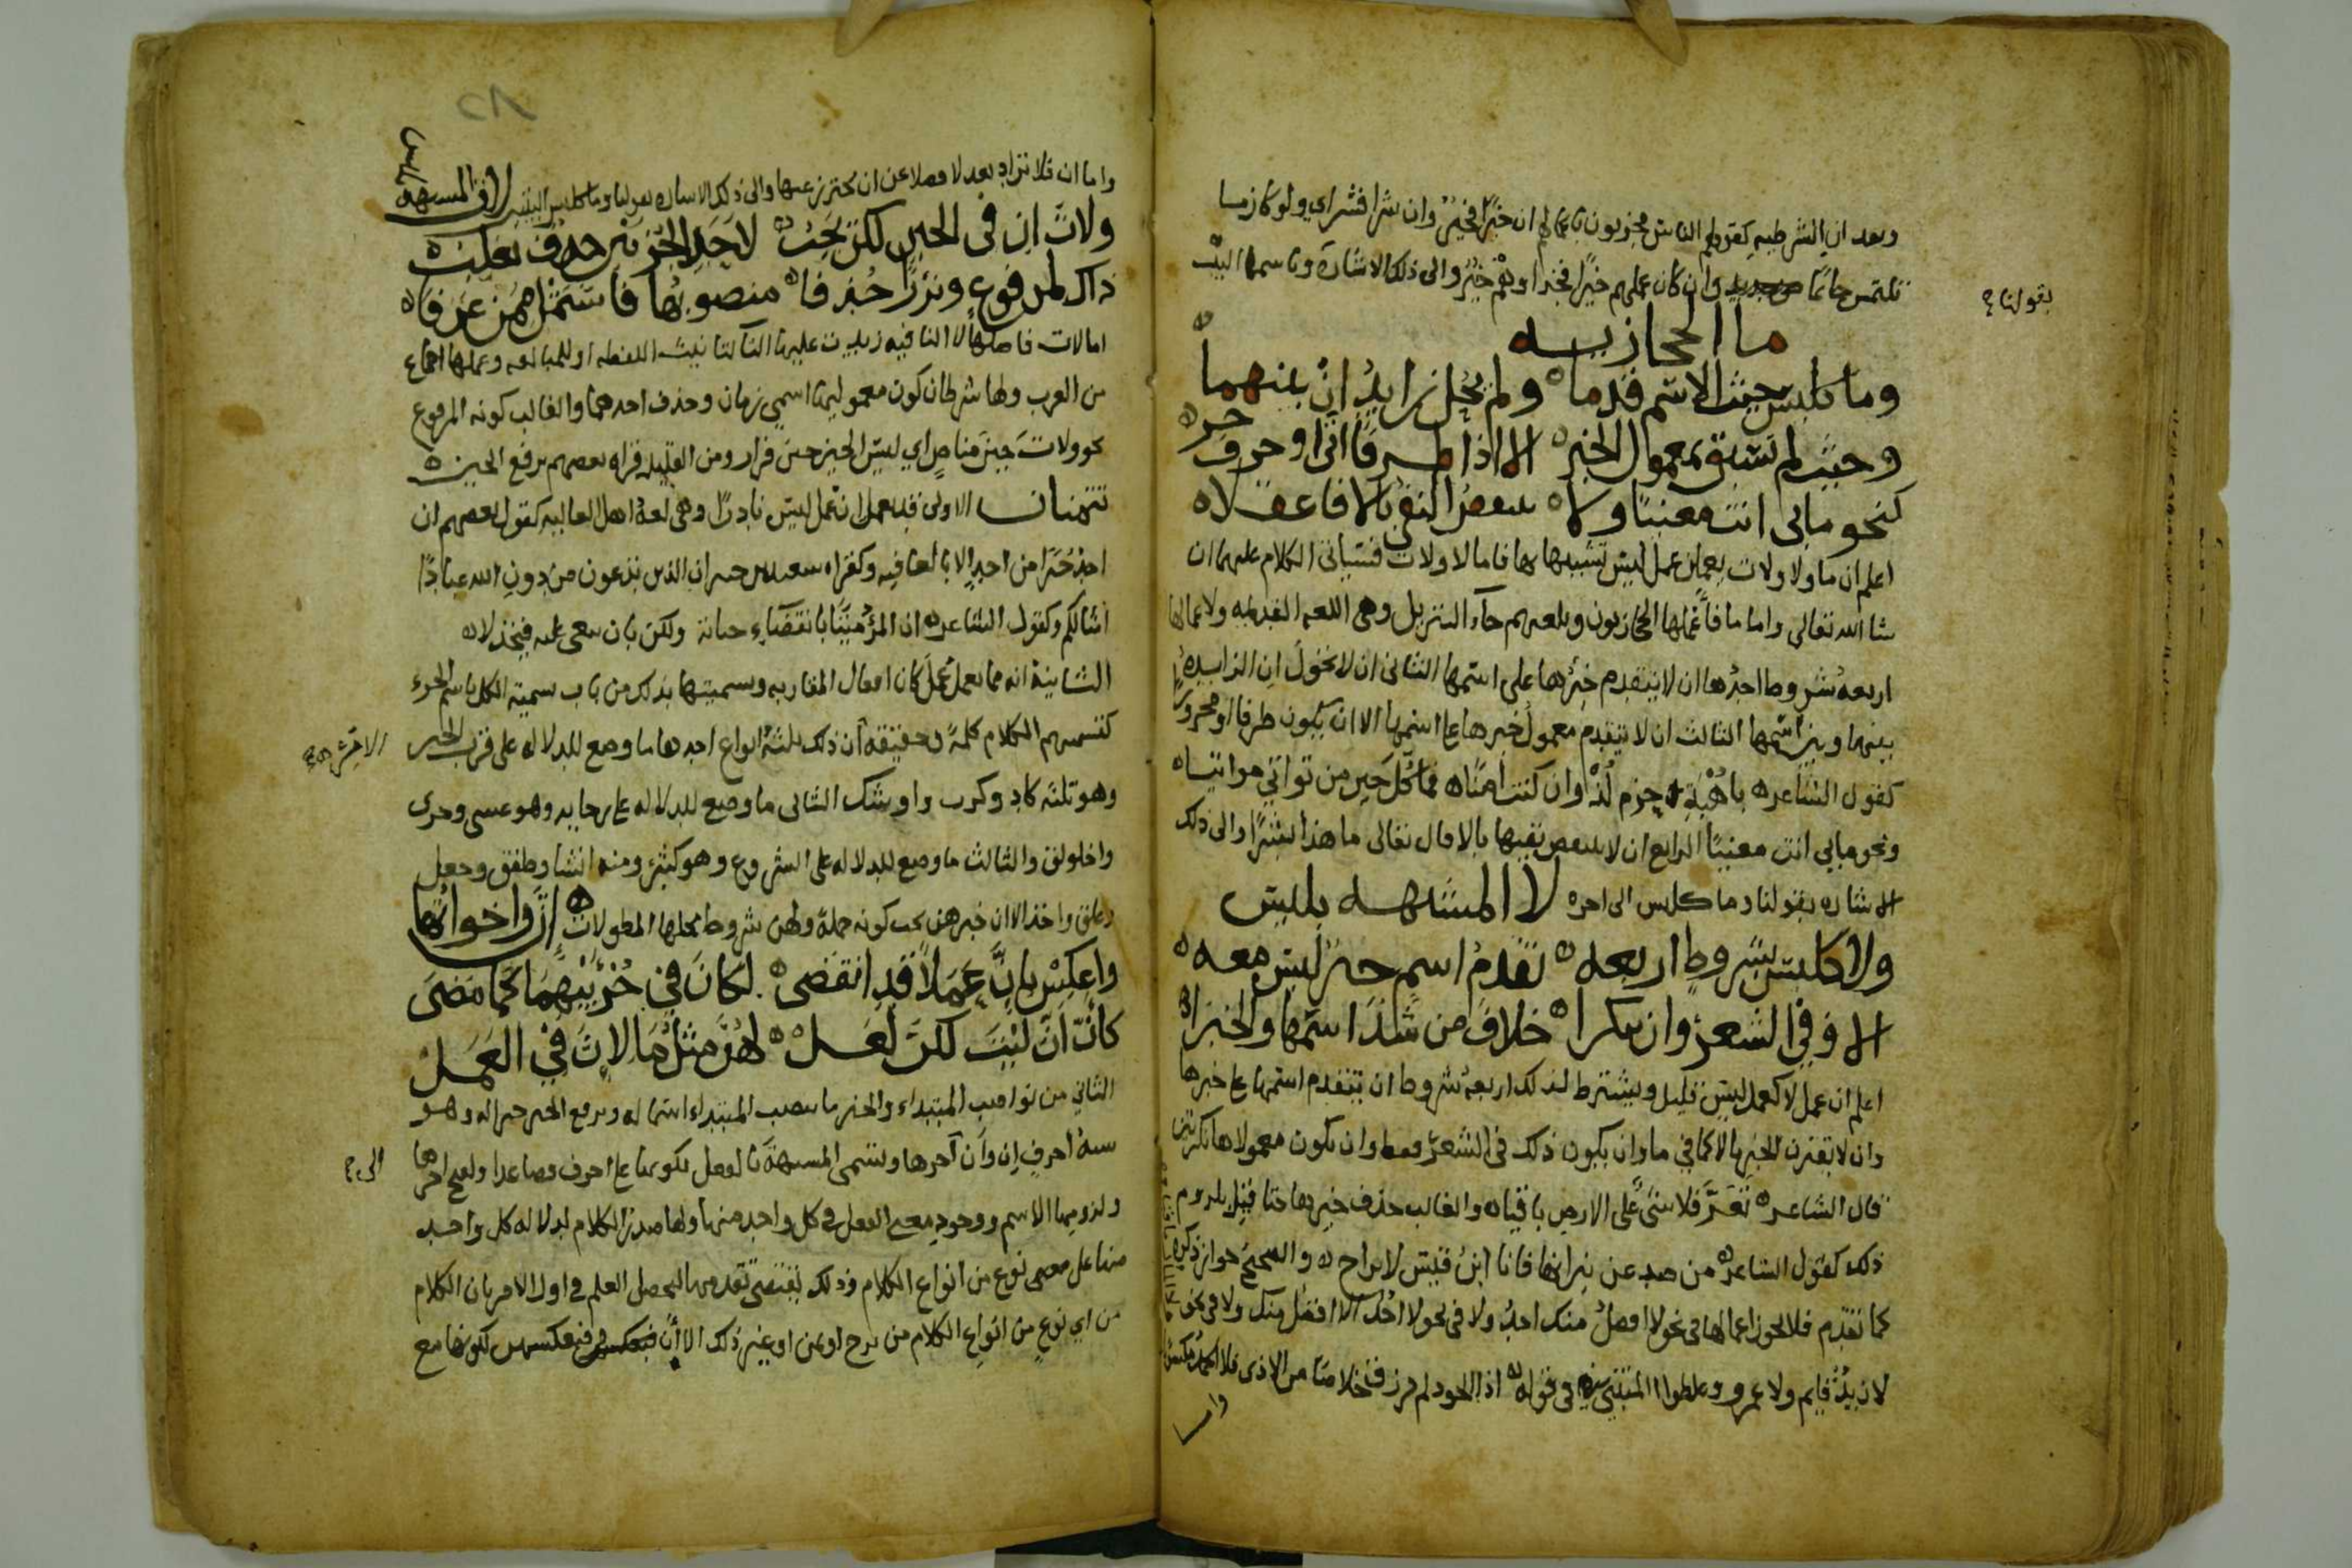 وبعد ان الشرطيه كقولهم الناس مجزيون باعمالهم ان خيرًا فخير وان شرا فشر اي ولو كان ما
تلتمس خاتمًا من حديد وان كان عملهم خيرًا فجزاوهم خيرٌ والى ذلك الاشارة وتاسمها البيت
بقولنا
ما الحجازيه
وما كليس حيث الاسم قدما ولم يحل زايد ان بينهما
وحيث لم تسبق بمعمول الخبر الا اذا ظرفا اتى او حرف جر
كنحو ما بى انت معنيا ولا ينتقض النفي بالا فاعقلا
اعلم ان ما ولا ولات يعملن عمل ليس تشبيها بها فاما لا ولات فسياتى الكلام عليهما ان
شا الله تعالى واما ما فاعملها الحجازيون وبلغتهم جآ التنزيل وهى اللغه القديمه ولاعمالها
اربعه شروط احدُها ان لا يتقدم خبرُها على اسمها الثانى ان لا تحول ان الزايده
بينها وبين اسمها الثالث ان لا يتقدم معمول خبرها على اسمها الا ان يكون ظرفا او مجرورا
كقول الشاعر باُهبةِ حزم لُذْ وان كنت امنًا فما كل حين من تواتي مواتيا
ونحو ما بي انت معنيًا الرابع ان لا ينتقض نفيها بالا قال تعالى ما هذا بشرًا والى ذلك
الاشاره بقولنا وما كليس الى اخره لا المشبهه بليس
ولا كليس بشروط اربعه تقدم اسم خبر ليس معه
الا وفي الشعر وان ينكرا خلاف من شذ اسمها والخبرا
اعلم ان عمل لا كعمل ليس قليل ويشترط لذلك اربعة شروط ان يتقدم اسمها على خبرها
وان لا يقترن الخبر بالا كما في ما وان يكون ذلك فى الشعر فقط وان يكون معمولاها نكرتين
قال الشاعر تعزَّ فلا شىٌ على الارض باقيا والغالب حذف خبرها حتا قيل بلزوم
ذلك كقول الشاعر من صد عن نيرانها فانا ابنُ قيس لا براح والصحيح جواز ذكره
كما تقدم فلا يجوز اعمالها فى نحو لا افضل منك احدٌ ولا فى نحو لا احُد الا افضل منك ولا فى نحو
لا زيدٌ قايم ولا عمرو وغلطوا المتنبي في قوله اذا الجود لم يرزق خلاصًا من الاذى فلا الحمدُ مكسوبا
واما
٨٢
واما ان فلا تزاد بعد لا فضلا عن ان يحترز عنها والى ذلك الاشاره بقولنا ولا كليس البيتين لات المشبهة بليس
ولاتَ ان فى الحين لكن يجب لاحد الجزئين حذف يغلب
ذاك لمرفوع ونزرًا حُذفا منصوبُها فاستمثلهُن عَرفا
اما لات فاصلها لا النافيه زيدت عليها التا لتانيث اللفظه او للمبالغه وعملها اجماع
من العرب ولها شرطان كون معموليها اسمي زمان وحذف احدهما والغالب كونه المرفوع
نحو ولاتَ حينَ مناصٍ اي ليس الحين حين فرار ومن القليل قراه بعضهم برفع الحين
تتمتان الاولى قد يعمل ان عمل ليس نادرًا وهى لغة اهل العاليه كقول بعضهم ان
احدٌ خيرًا من احدٍ الا بالعافيه وكقراه سعيد بن جبير ان الذين تدعون من دون الله عبادًا
امثالكم وكقول الشاعر ان المرؤُ ميتًا بانقضآء حياته ولكن بان يبغى عليه فيخذلا
الثانية انه مما يعمل عملَ كان افعال المقاربه وتسميتها بذلك من باب تسمية الكل باسم الجزء
كتسميتهم الكلام كلمةً وحقيقة ان ذلك ثلثة انواع احدها ما وضع للدلاله على قرب الخبر
وهو ثلثه كاد وكرب واوشك الثانى ما وضع للدلاله على رجايه وهو عسى وحرى
واخلولق والثالث ما وضع للدلاله على الشروع وهو كثيرٌ ومنه انشا وطفق وجعل
وعلق واخذ الا ان خبرهن يجب كونه جملة ولهن شروط محلها المطولات إنَّ واخواتُها
واعكِسْ بإنَّ عَمَلاً قدِ انقضى لكانَ فِي جُزْئَيْهِمَا كما مَضَى
كأنَّ أنَّ ليتَ لكنَّ لعل لهُنَّ مثلُ مَا لإنَّ فِي العَمَلْ
الثاني من نواسخ المبتداء والخبر ما ينصب المبتداء اسمًا له ويرفع الخبر خبرا له وهو
ستة احرف ان وأن آخرها وتسمى المشبهة بالفعل لكونها على احرف فصاعدا ولفتح اخرها
الى
ولزومها الاسم ووجود معنى الفعل فى كل واحد منها ولها صدر الكلام لدلاله كل واحد
منها على معنى نوع من انواع الكلام وذلك يقتضى تقدمها ليحصل العلم فى اول الامر بان الكلام
من اي نوعٍ من انواع الكلام من ترج او تمن او غير ذلك الا أنَّ فبعكسهن لكونها مع